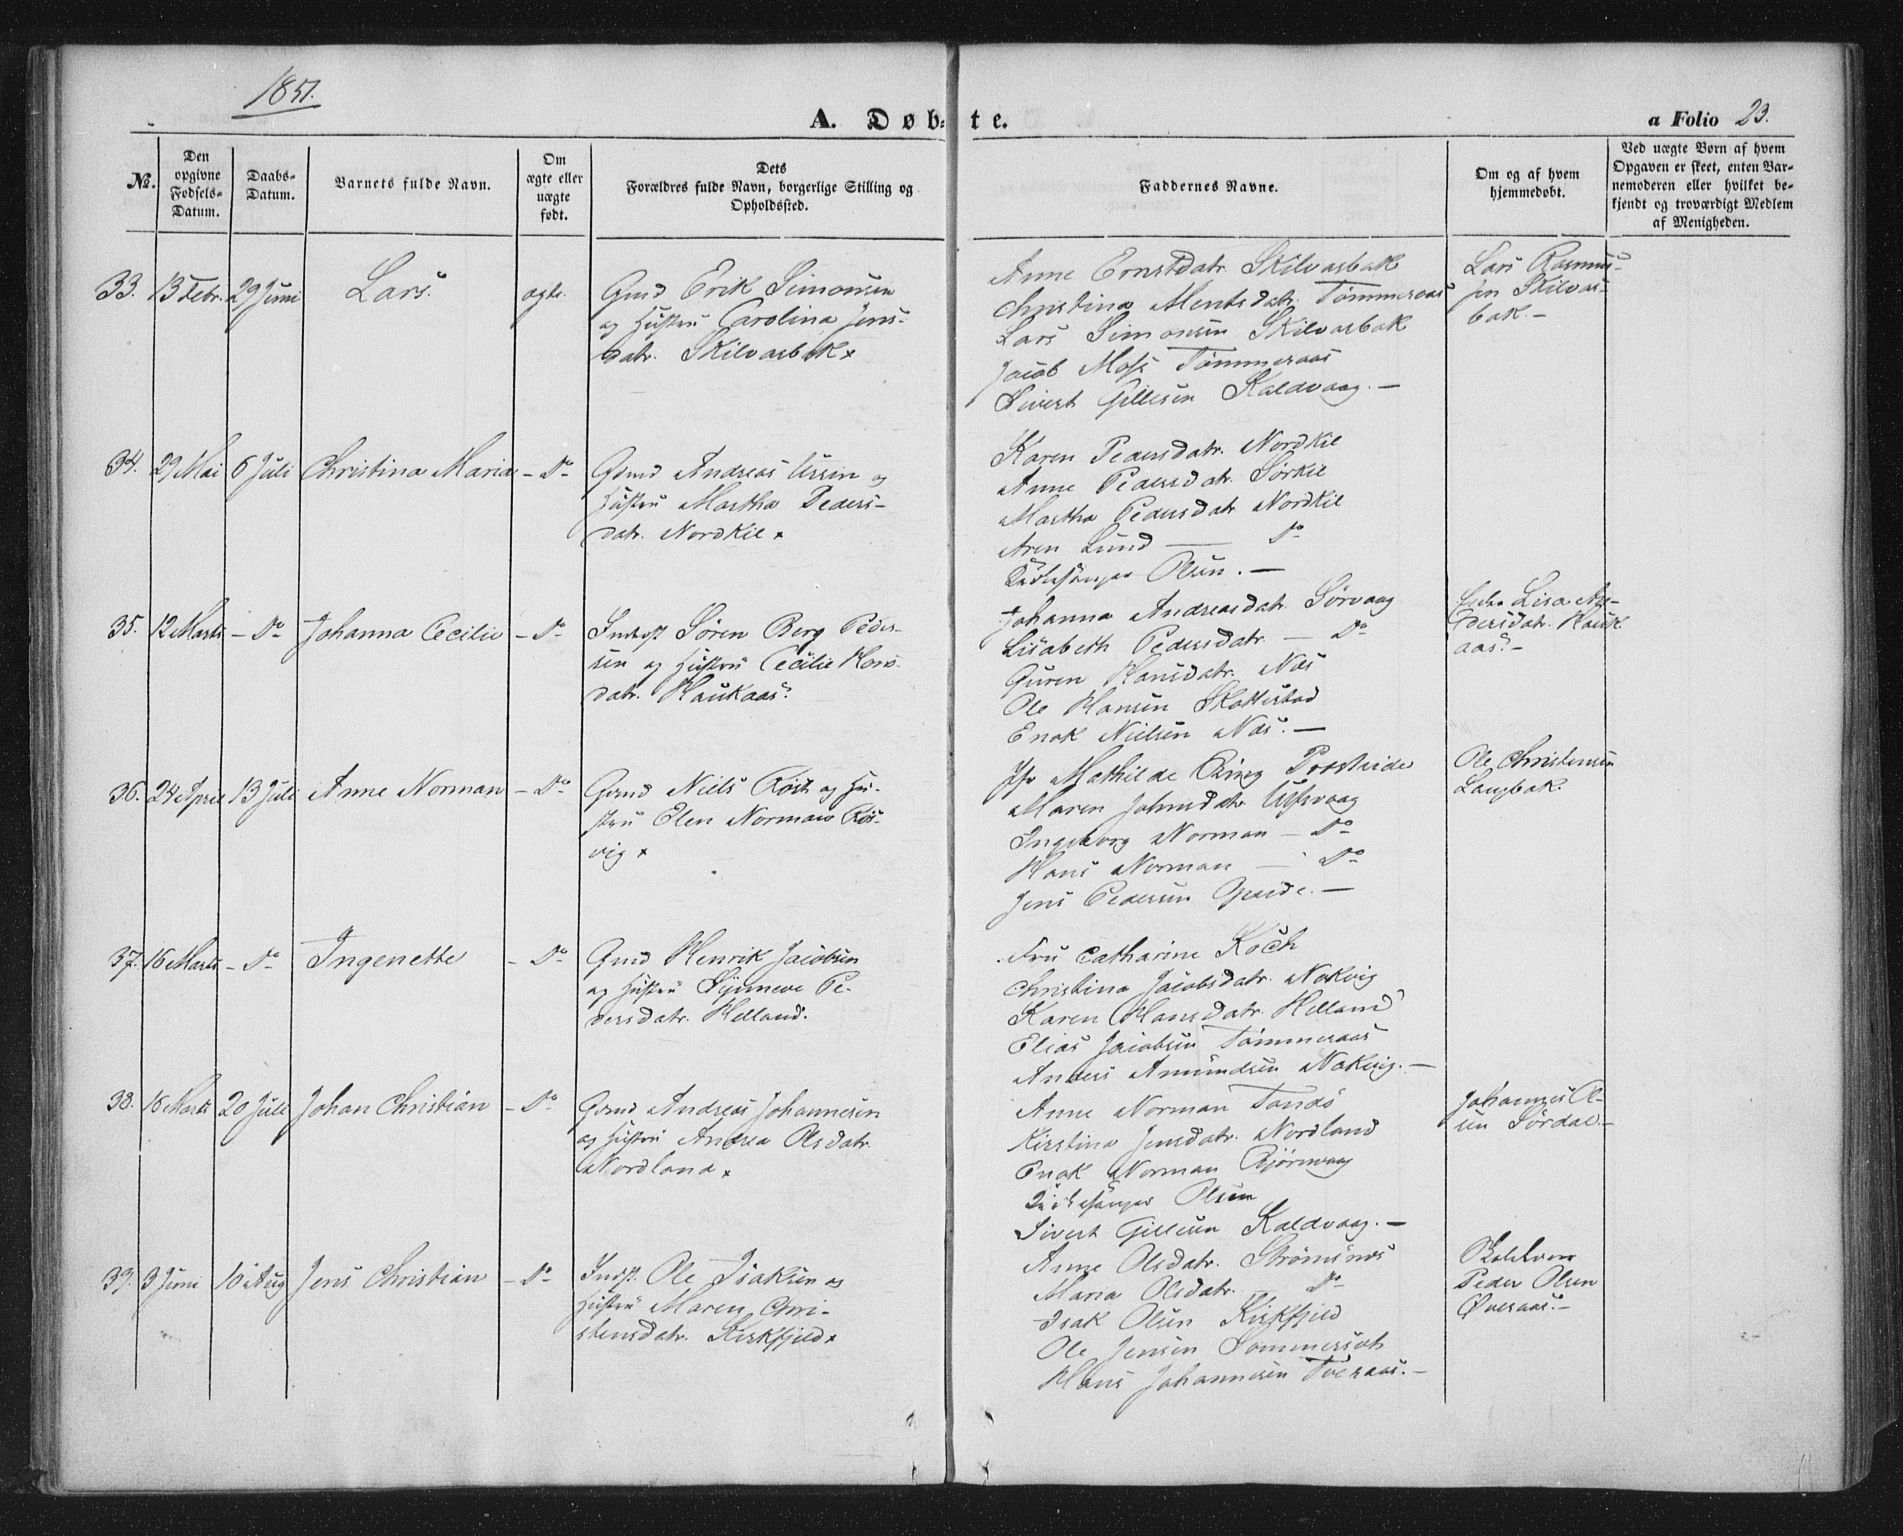 1851.
A. Døb-te.
a Folio 23.
No.
Den opgivne Fødsels-Datum.
Daabs-Datum.
Barnets fulde Navn.
Om ægte eller uægte født.
Dets Forældres fulde Navn, borgerlige Stilling og Opholdssted.
Faddernes Navne.
Om og af hvem hjemmedøbt.
Ved uægte Børn af hvem Opgaven er skeet, enten Barnemoderen eller hvilket bekjendt og troværdigt Medlem af Menigheden.
33. 13 Febr. 29 Juni Lars. ægte.
Gmd Erik Simonsen
og Hustru Carolina Jens-
datr. Skilvasbak
Anne Ernstdatr. Skilvasbak
Christina Mentsdatr. Tømmeraas
Lars Simonsen Skilvasbak
Jacob Moss Tømmeraas
Sivert Gillesen Kaldvaag. —
Lars Rasmus-
sen Skilvas-
bak. —
34. 29 Mai 6 Juli Christina Maria - Do
Gmd Andreas Ursin og
Hustru Martha Peders-
datr. Nordkil
Karen Pedersdatr. Nordkil
Anne Pedersdatr. Sørkil
Martha Pedersdatr Nordkil
Aren Lund — Do
Kirkesanger Olsen. —
35. 12 Marts - Do Johanna Cecilie - Do
Indst Søren Berg Peder-
sen og Hustru Cecilie Hans-
datr. Haukaas.
Johanna Andreasdatr. Sørvaag
Lisabeth Pedersdatr. — Do
Guren Hansdatr. Næs
Ole Hansen Skottestad
Enok Nielsen Næs. —
Lisa An-
dersdatr. Hauk
aas. —
36. 24 April 13 Juli Anne Norman - Do
Gmd Niels Røst og Hu-
stru Elen Norman Røs-
vig
Jfr Mathilde Ring Presteide
Maren Johnsdatr Ulfsvaag
Ingeborg Norman — Do
Hans Norman — Do
Jens Pedersen Opeide. —
Ole Christensen
Langbak.
37. 16 Marts - Do Ingenette - Do
Gmd Henrik Jacobsen
og Hustru Synneve Pe-
dersdatr. Helland.
Fru Catharine Koch
Christina Jacobsdatr. Nakvig
Karen Hansdatr. Helland
Elias Jacobsen Tømmeraas
Anders Amundsen Nakvig. —
38. 16 Marts 20 Juli Johan Christian - Do
Gmd Andreas Johannesen
og Hustru Andrea Olsdatr.
Nordland
Anne Norman Tandø
Kirstina Jensdatr. Nordland
Enok Norman Bjørnvaag
Kirkesanger Olsen
Sivert Gillesen Kaldvaag. —
Johannes Ol-
sen Sørdal. —
39. 3 Juni 10 Aug Jens Christian - Do
Indst. Ole Isaksen og
Hustru Maren Chri-
stensdatr. Kirkfjeld
Anne Olsdatr. Strømsnæs
Maria Olsdatr. Do
Isak Olsen Kirkfjeld
Ole Jensen Sommerset
Hans Johannesen Tveraas. —
Peder Olsen
Øveraas. —